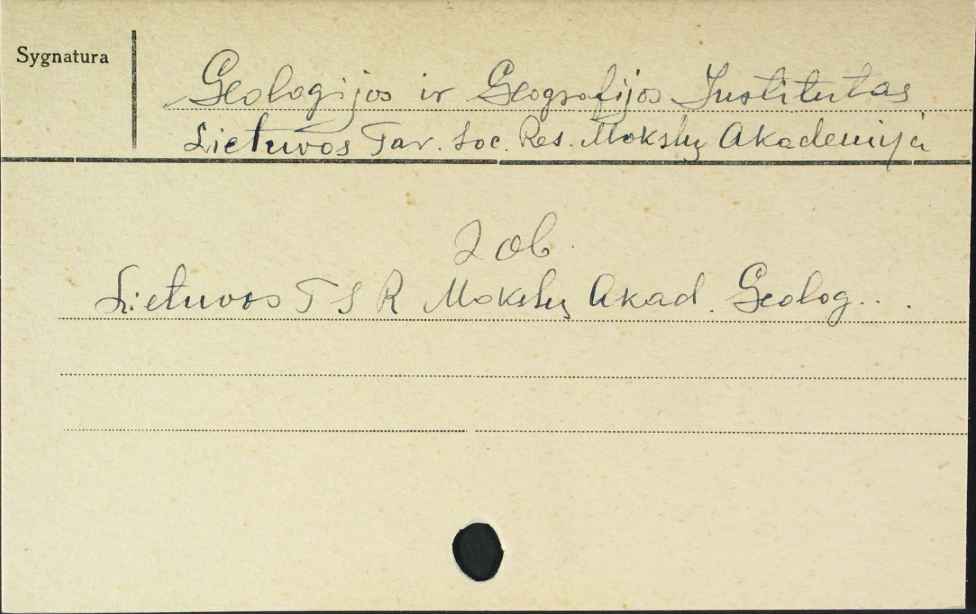 Sygnatura
Geologijos ir Geografijos Institutas
Lietuvos Tar. Soc. Res. Mokslų Akademija
Zob.
Lietuvos TSR Mokslų Akad. Geolog...